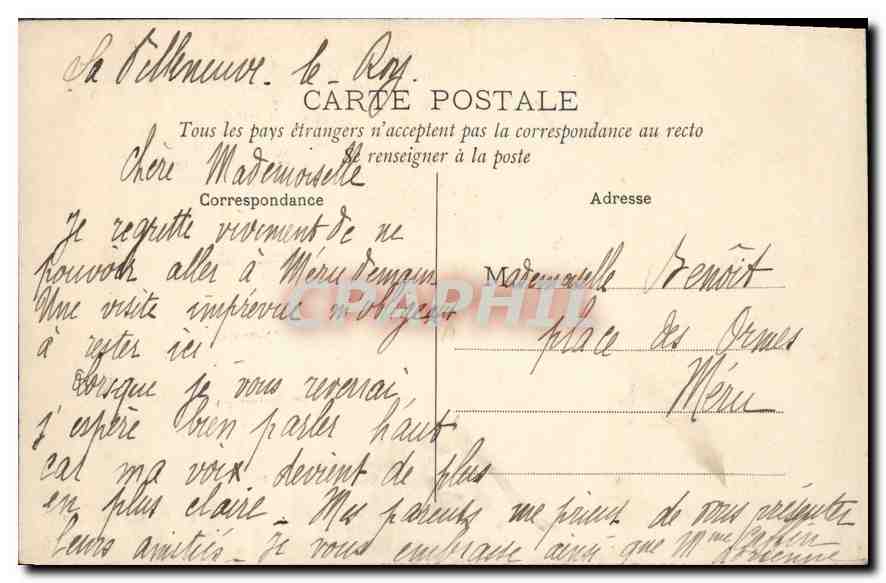 La Villeneuve-le-Roy.
CARTE POSTALE
Tous les pays étrangers n'acceptent pas la correspondance au recto
Se renseigner à la poste
Chère Mademoiselle
Correspondance
Je regrette vivement de ne
pouvoir aller à Méru demain
Une visite imprévue m'obligeant
à rester ici
Lorsque je vous reverrai
j'espère bien parler haut
car ma voix devient de plus
en plus claire - Mes parents me prient de vous présenter
leurs amitiés - Je vous embrasse ainsi que Mme
Adrienne
Adresse
Mademoiselle Benoît
place des Ormes
Méru
CPAPHIL